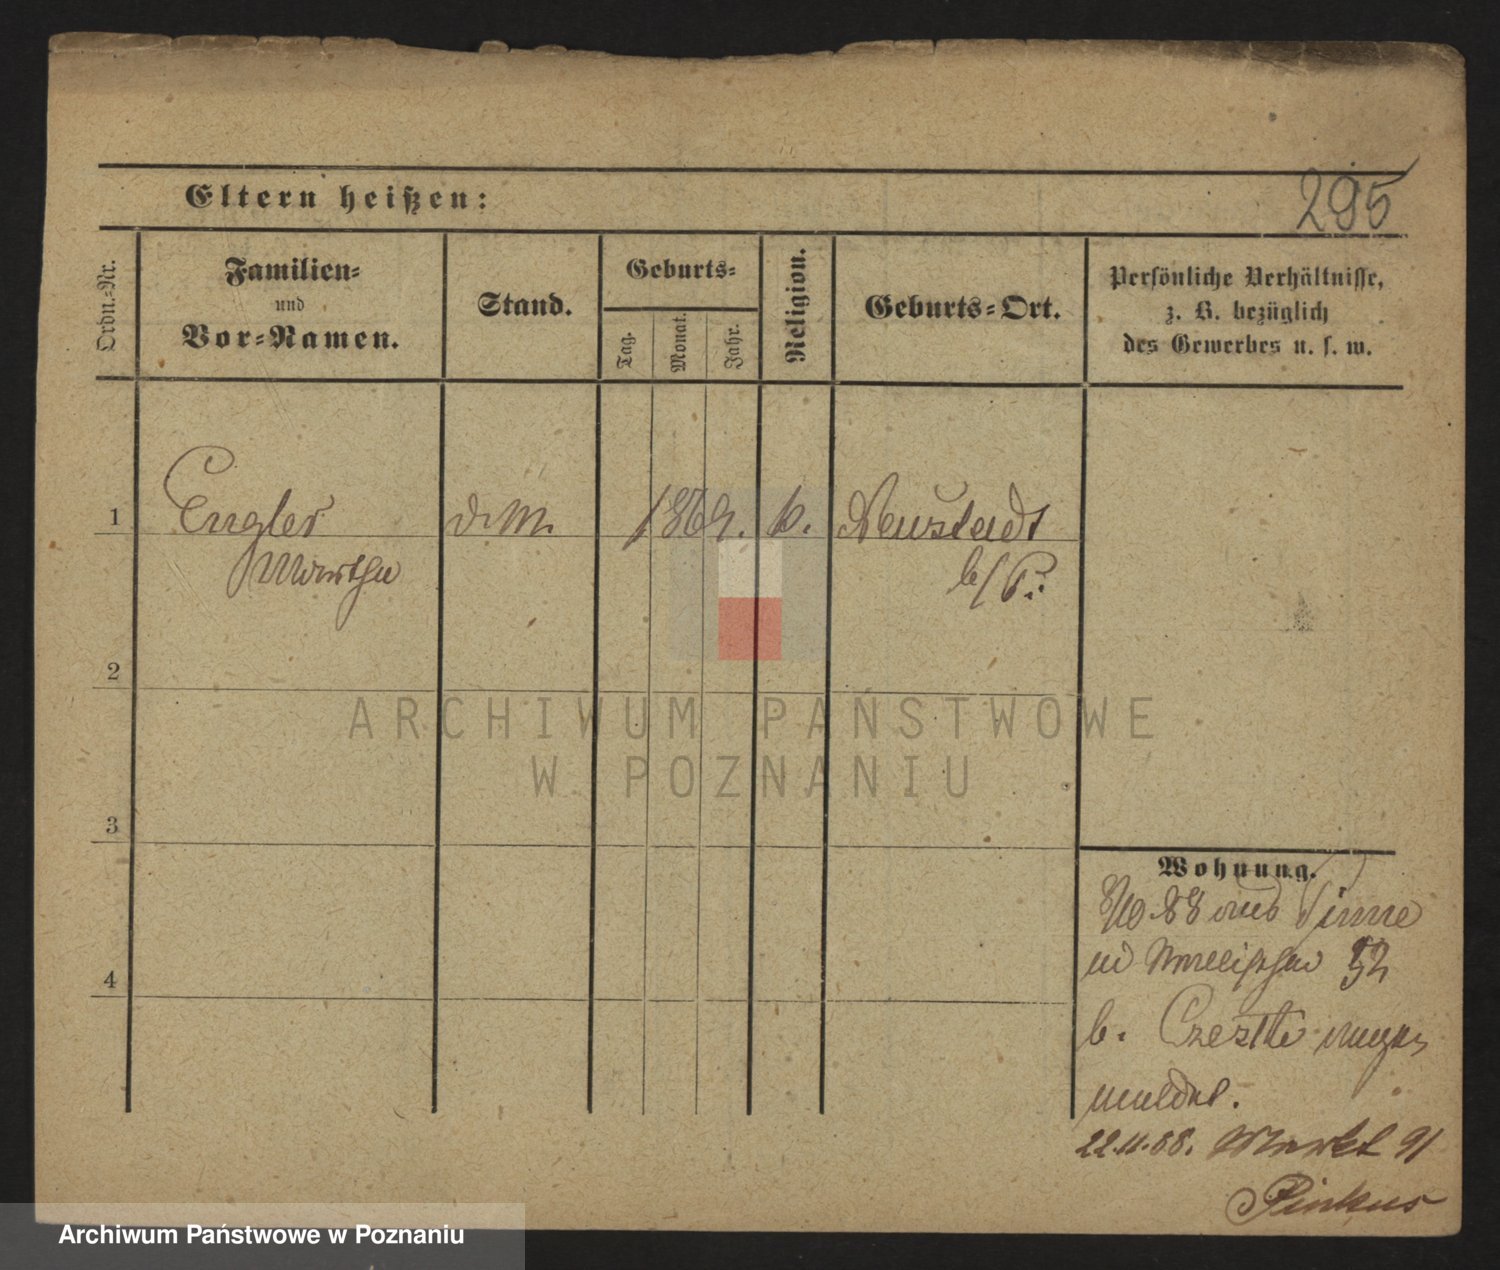 295
Eltern heißen:
Ordn.-Nr.
Familien-
und
Vor-Namen.
Stand.
Geburts-
Tag.
Monat.
Jahr.
Religion.
Geburts-Ort.
Persönliche Verhältnisse,
z. B. bezüglich
des Gewerbes u. s. w.
1
Engler
Martha
d. M.
1869.
k.
Neustadt
b/P.
2
3
4
Wohnung.
8/10. 88 aus Pinne
52
b.
meldet.
22.11.88. Markt 91
Pinkus
ARCHIWUM PAŃSTWOWE
W POZNANIU
Archiwum Państwowe w Poznaniu